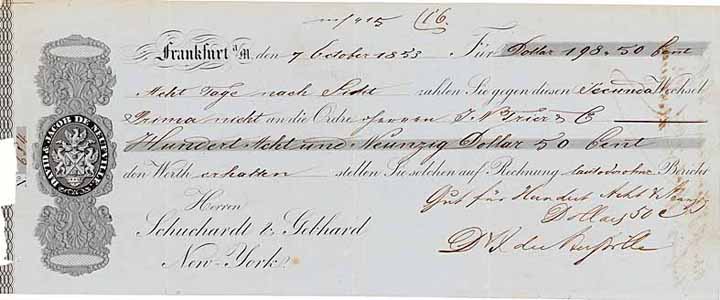 No/915 (16.
Frankfurt a/M den 7 October 1853 Für Dollar 198.50 Cent
Acht Tage nach Sicht zahlen Sie gegen diesen Secunda Wechsel
Prima nicht an die Ordre Herren J. N. Trier & C.
Hundert Acht und Neunzig Dollar 50 Cent
den Werth erhalten stellen Sie solchen auf Rechnung laut oder ohne Bericht
Gut für Hundert Acht &
Dollars 50
Herren
Schuchardt & Gebhard
New-York
Dd J. de Neufville
DAVID & JACOB DE NEUFVILLE
No